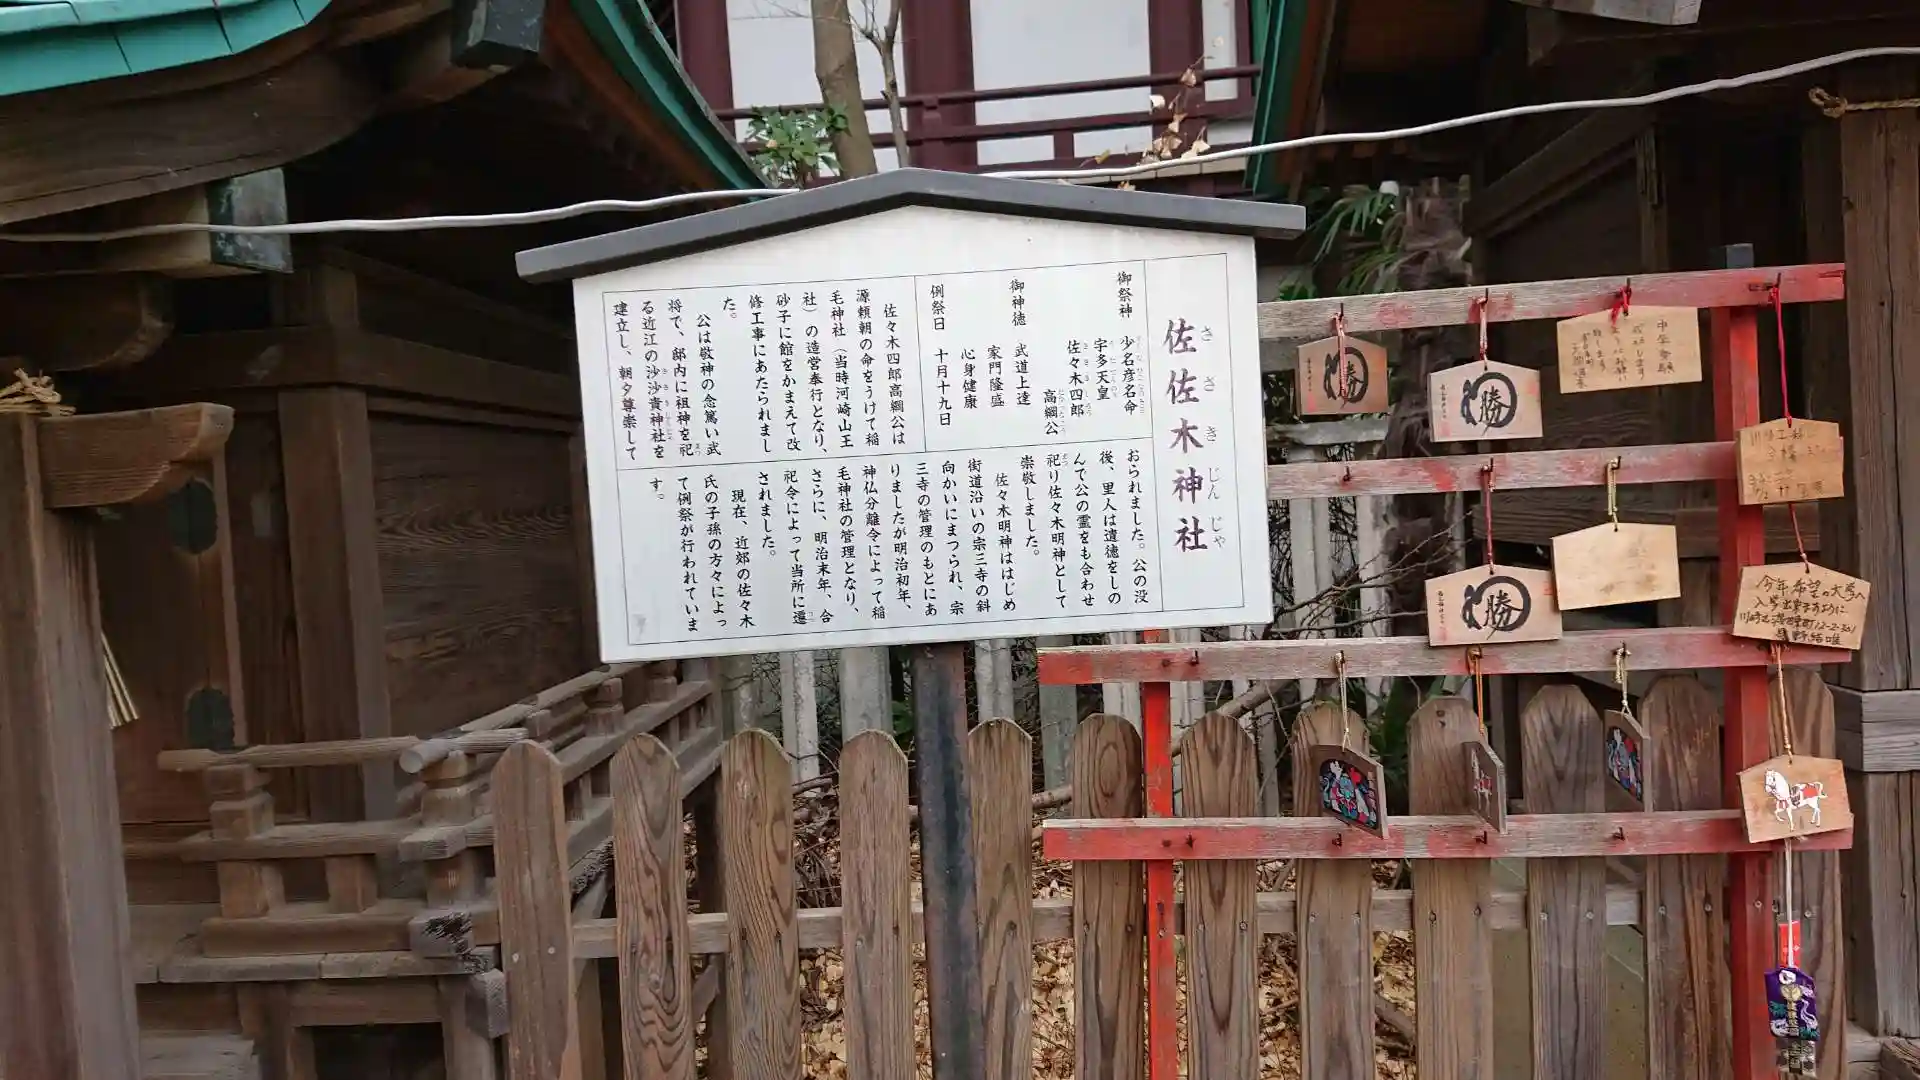 佐佐木神社
さ さ き じん じゃ
御祭神 少名彦名命
宇多天皇
佐々木四郎
高綱公
御神徳 武道上達
家門隆盛
心身健康
例祭日 十月十九日
佐々木四郎高綱公は
源頼朝の命をうけて稲
毛神社(当時河崎山王
社)の造営奉行となり、
砂子に館をかまえて改
修工事にあたられまし
た。
公は敬神の念篤い武
将で、邸内に祖神を祀
る近江の沙沙貴神社を
建立し、朝夕尊崇して
おられました。公の没
後、里人は遺徳をしの
んで公の霊をも合わせ
祀り佐々木明神として
崇敬しました。
佐々木明神ははじめ
街道沿いの宗三寺の斜
向かいにまつられ、宗
三寺の管理のもとにあ
りましたが明治初年、
神仏分離令によって稲
毛神社の管理となり、
さらに、明治末年、合
祀令によって当所に遷
されました。
現在、近郊の佐々木
氏の子孫の方々によっ
て例祭が行われていま
す。
勝
勝
勝
今年希望の大学へ
入学出来ますように